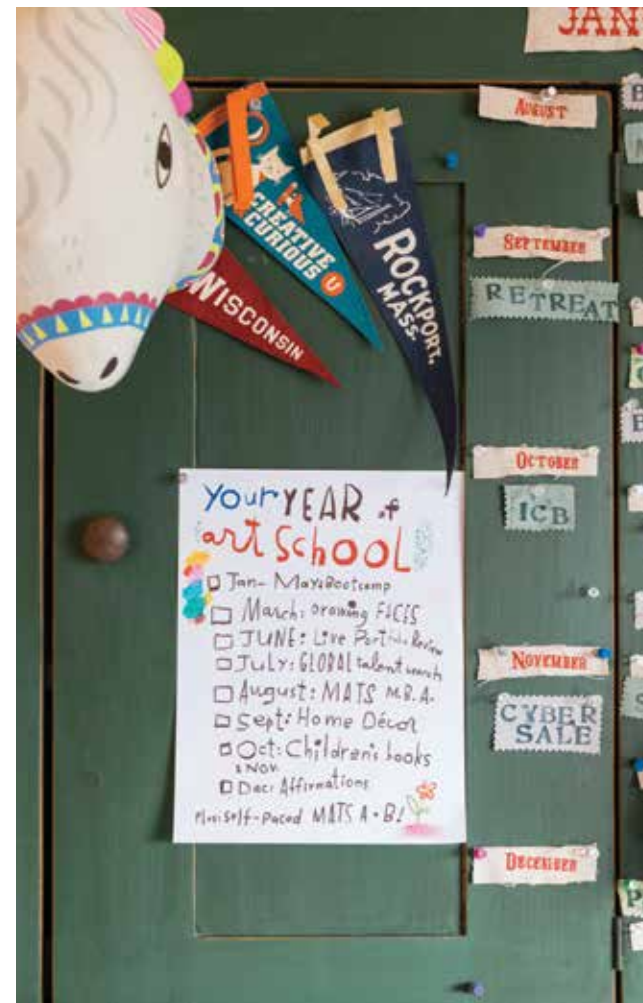 JAN
AUGUST
SEPTEMBER
RETREAT
OCTOBER
ICB
NOVEMBER
CYBER
SALE
DECEMBER
CREATIVE
CURIOUS
U
ROCKPORT,
MASS.
WISCONSIN
your YEAR of
art SCHOOL
Jan- May: Bootcamp
March: Drawing FACES
JUNE: Live Portfolio Review
July: GLOBAL talent search
August: MATS M.B.A.
Sept: Home Décor
Oct: Children's books
& NOV.
Dec: Affirmations
Plus: Self-Paced MATS A + B!